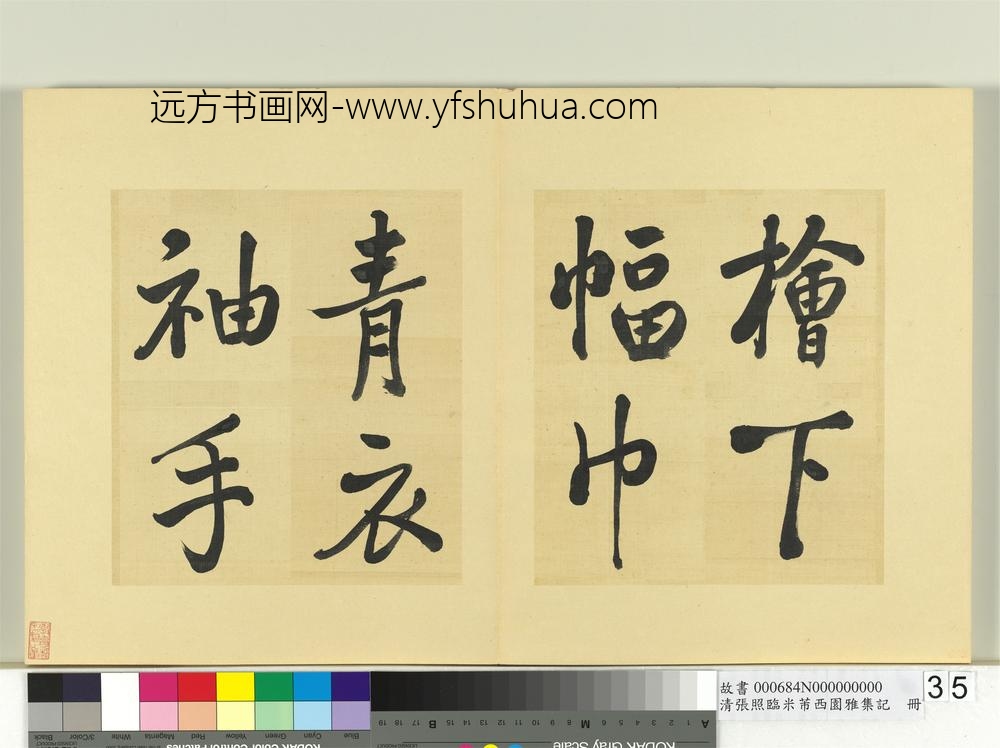 远方书画网-www.yfshuhua.com
檜下
幅巾
青衣
袖手
故書 000684N000000000
清張照臨米芾西園雅集記 冊
35
Black
3/Color
White
Magenta
Red
Yellow
Green
Cyan
Blue
A 1 2 3 4 5 6 M 8 9 10 11 12 13 14 15 B 17 18 19
KODAK Color Control Patches
KODAK Gray Scale